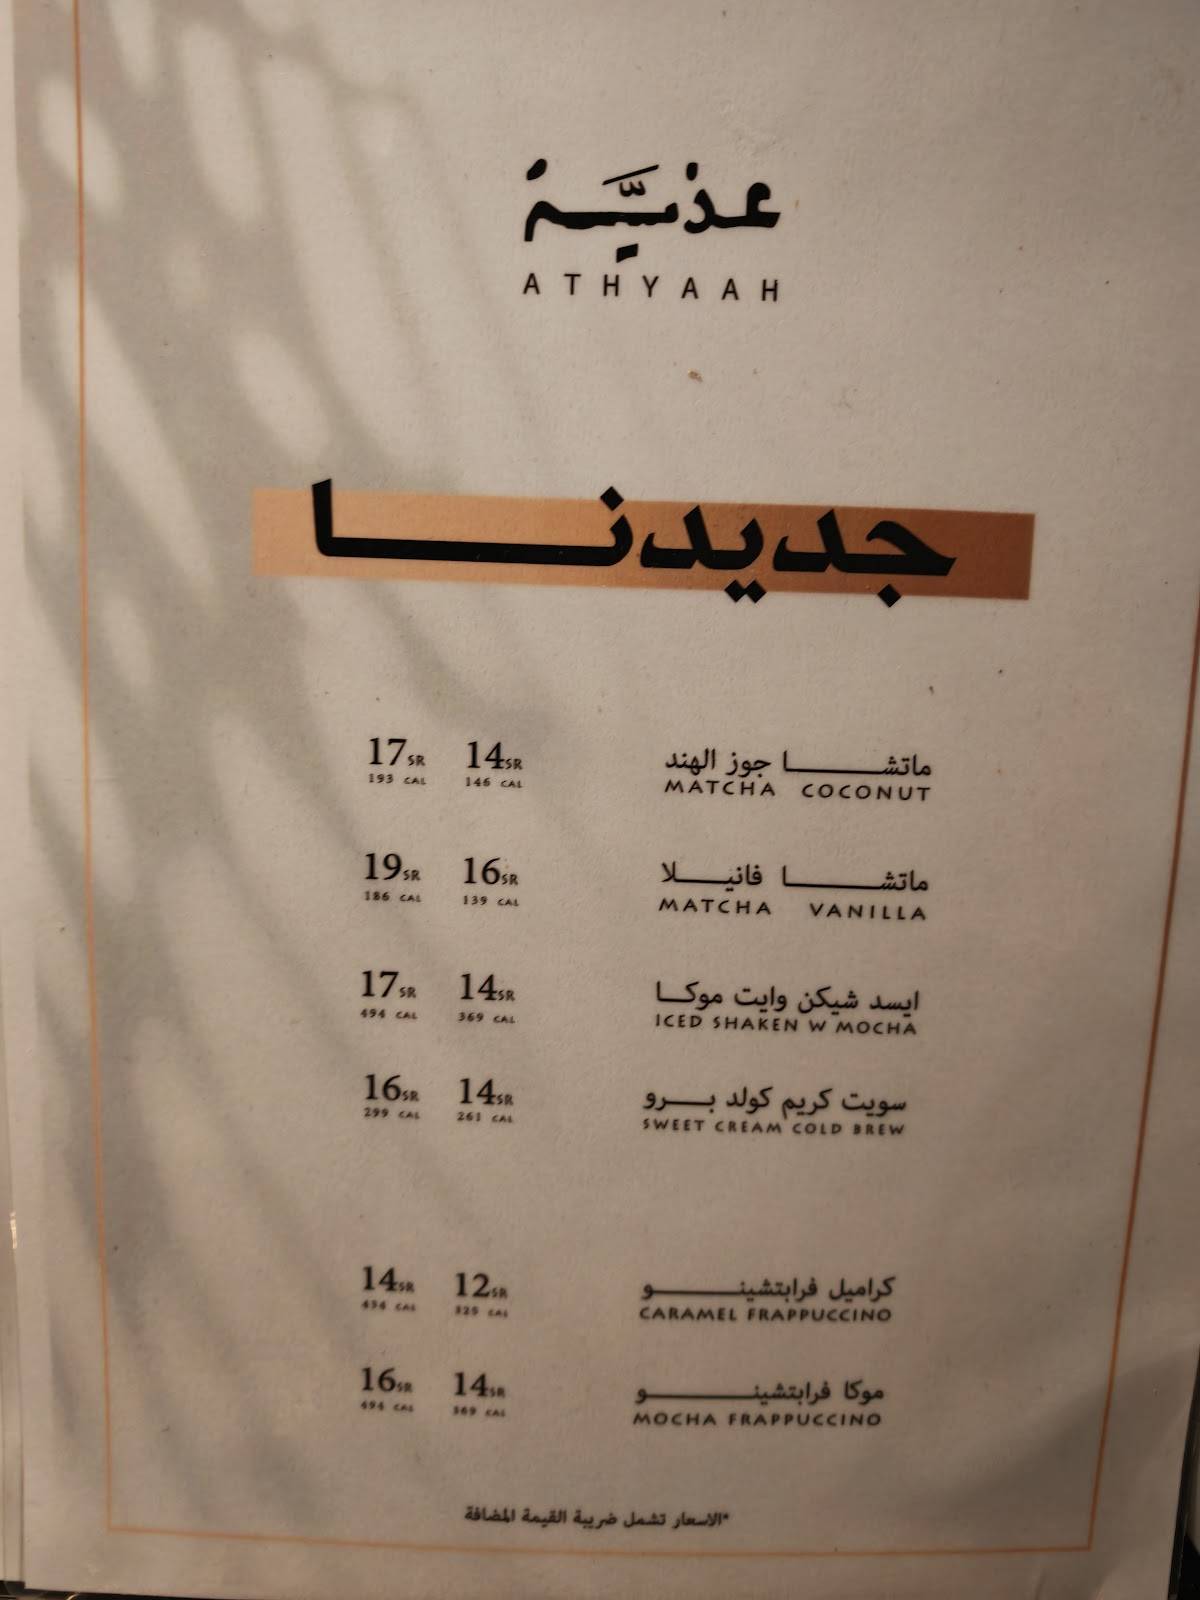 عذيَّة
ATHYAAH
جديدنا
ماتشا جوز الهند 14SR 17SR
MATCHA COCONUT 146 CAL 193 CAL
ماتشا فانيلا 16SR 19SR
MATCHA VANILLA 139 CAL 186 CAL
ايسد شيكن وايت موكا 14SR 17SR
ICED SHAKEN W MOCHA 369 CAL 494 CAL
سويت كريم كولد برو 14SR 16SR
SWEET CREAM COLD BREW 261 CAL 299 CAL
كراميل فرابتشينو 12SR 14SR
CARAMEL FRAPPUCCINO CAL CAL
موكا فرابتشينو 14SR 16SR
MOCHA FRAPPUCCINO 369 CAL 494 CAL
*الاسعار تشمل ضريبة القيمة المضافة